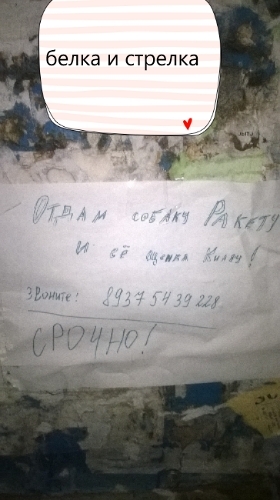 белка и стрелка
Отдам собаку Ракету
и её щенка
Звоните: 89375439228
СРОЧНО!